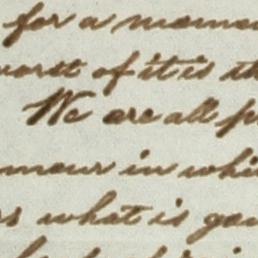 for a momen
worst of it is th
We are all p
mour in whi
rs what is goi